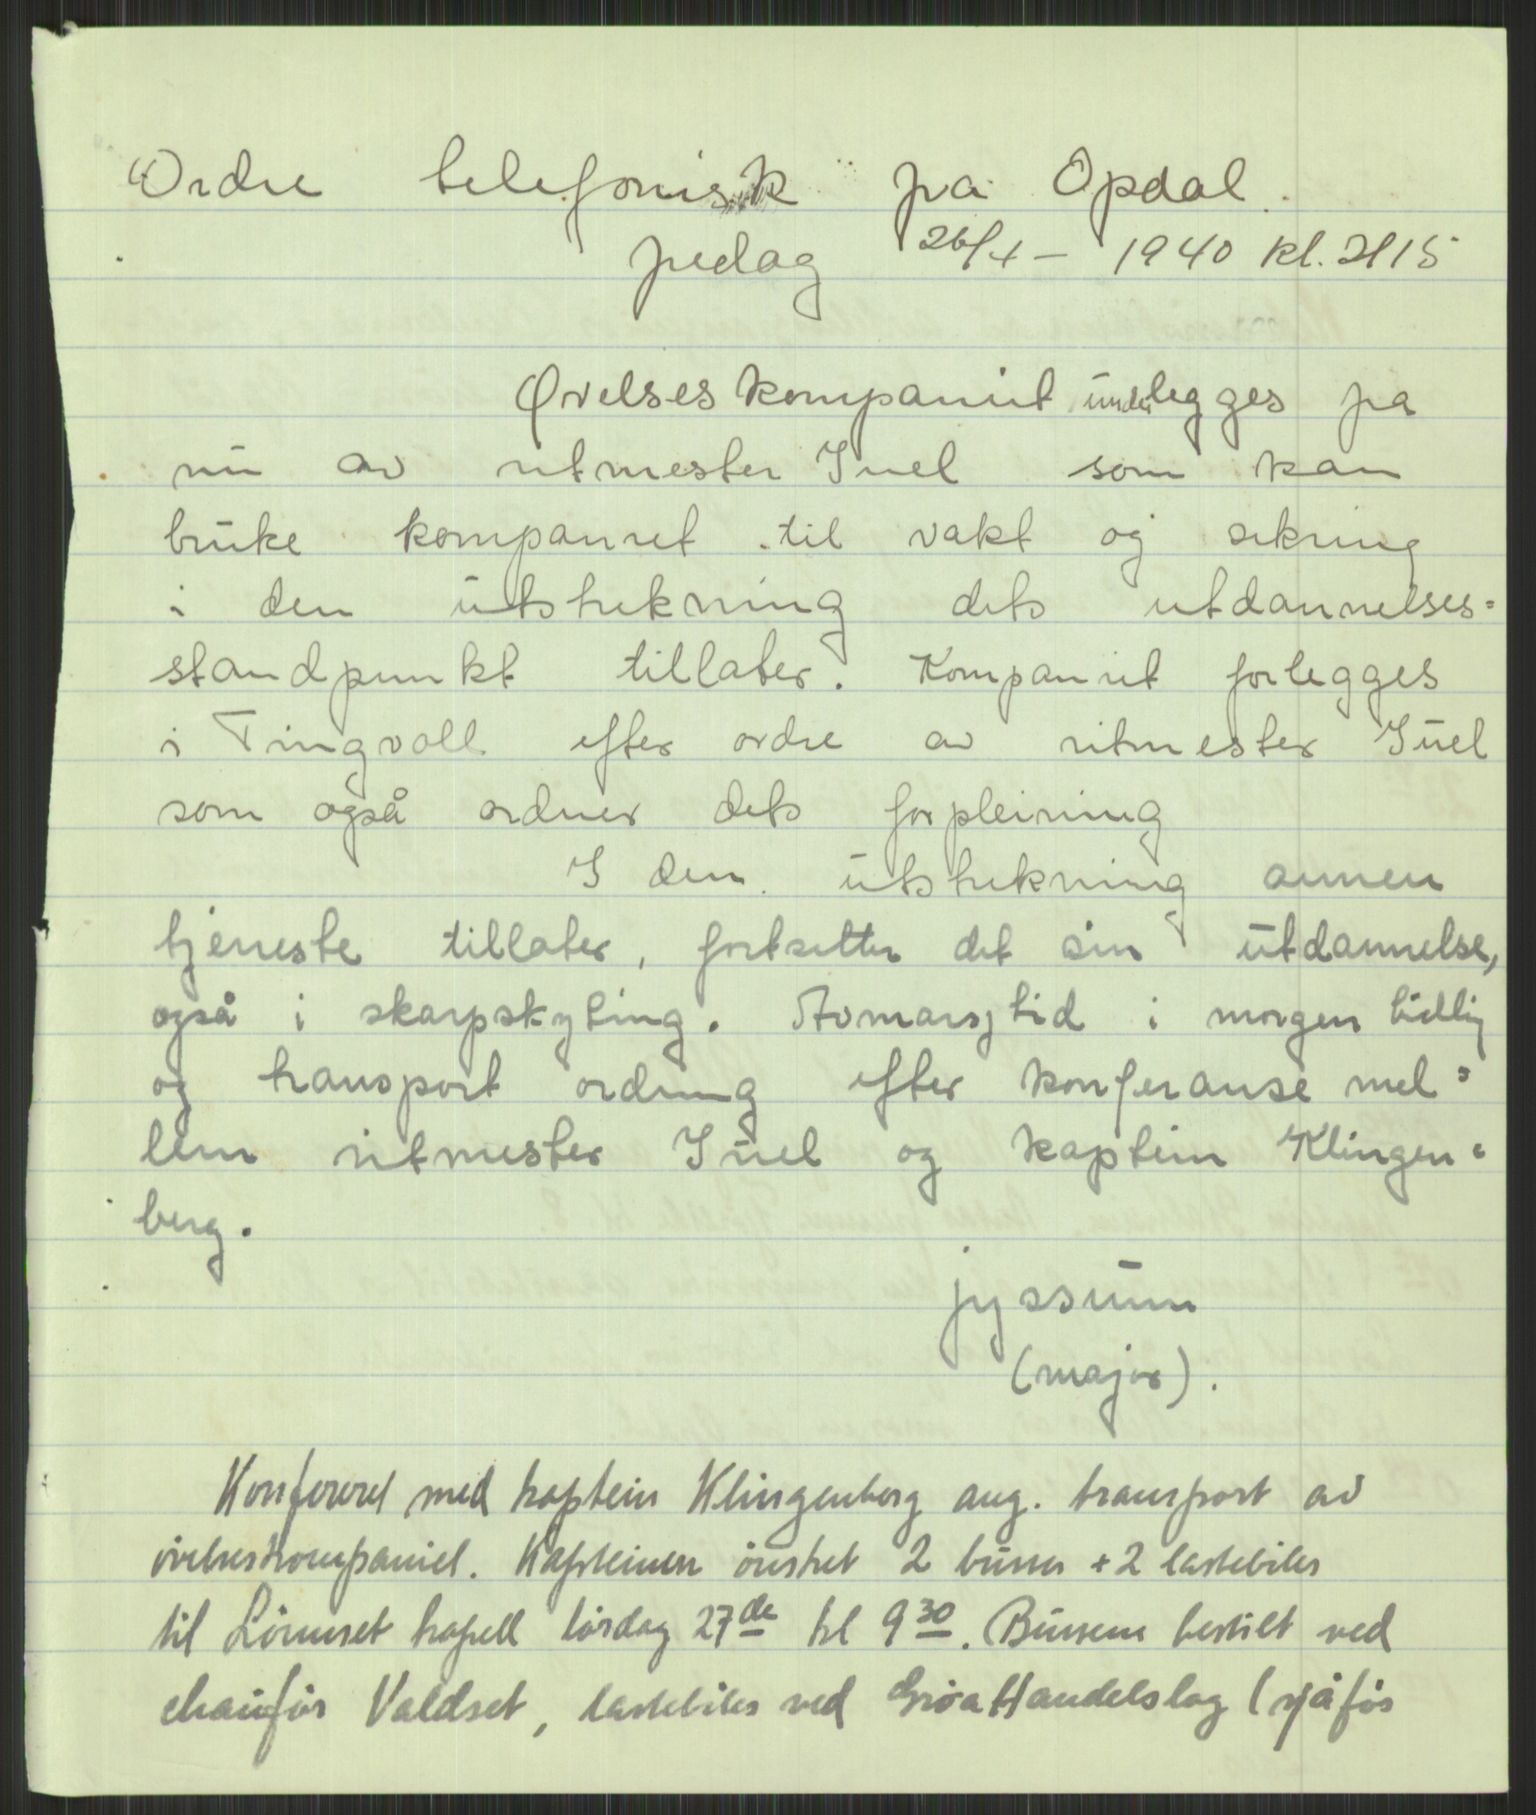 Ordre telefonisk på Opdal.
fredag 26/4 – 1940 kl. 2115
Øvelseskompaniet underlegges fra
nu av ritmester Juel som kan
bruke kompaniet til vakt og sikring
i den utstrekning dets utdannelses=
standpunkt tillater. Kompaniet forlegges
i Tingvoll efter ordre av ritmester Juel
som også ordner dets forpleining
I den utstrekning annen
tjeneste tillater, fortsetter det sin utdannelse,
også i skarpskyting. Avmarsjtid i morgen tidlig
og transport ordning efter konferanse mel=
lem ritmester Juel og kaptein Klingen=
berg.
jyssum
(major).
Konfereret med kaptein Klingenberg ang. transport av
øvelseskompaniet. Kapteinen ønsket 2 busser + 2 lastebiler
til Lønset kapell lørdag 27de kl 9 30. Bussene bestilt ved
chauffør Valdset, lastebiler ved Grøa Handelslag (sjåfør